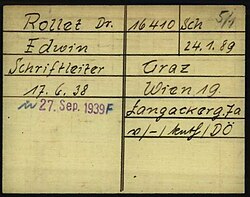 Rollet Dr. 16410 Sch 5/1
Edwin 24.1.89
Schriftleiter Graz
17.6.38 Wien 19.
27. Sep. 1939 F Langackerg. 7a
/-/ /DÖ